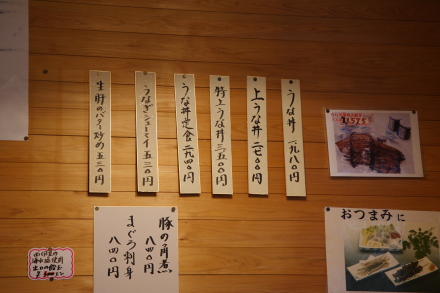 うな丼 一九八〇円
上うな丼 二七〇〇円
特上うな丼 三五〇〇円
うな丼定食 二九四〇円
うなぎシューマイ 五三〇円
生肝のバター炒め 五三〇円
豚の角煮
八四〇円
まぐろ刺身
八四〇円
おつまみに